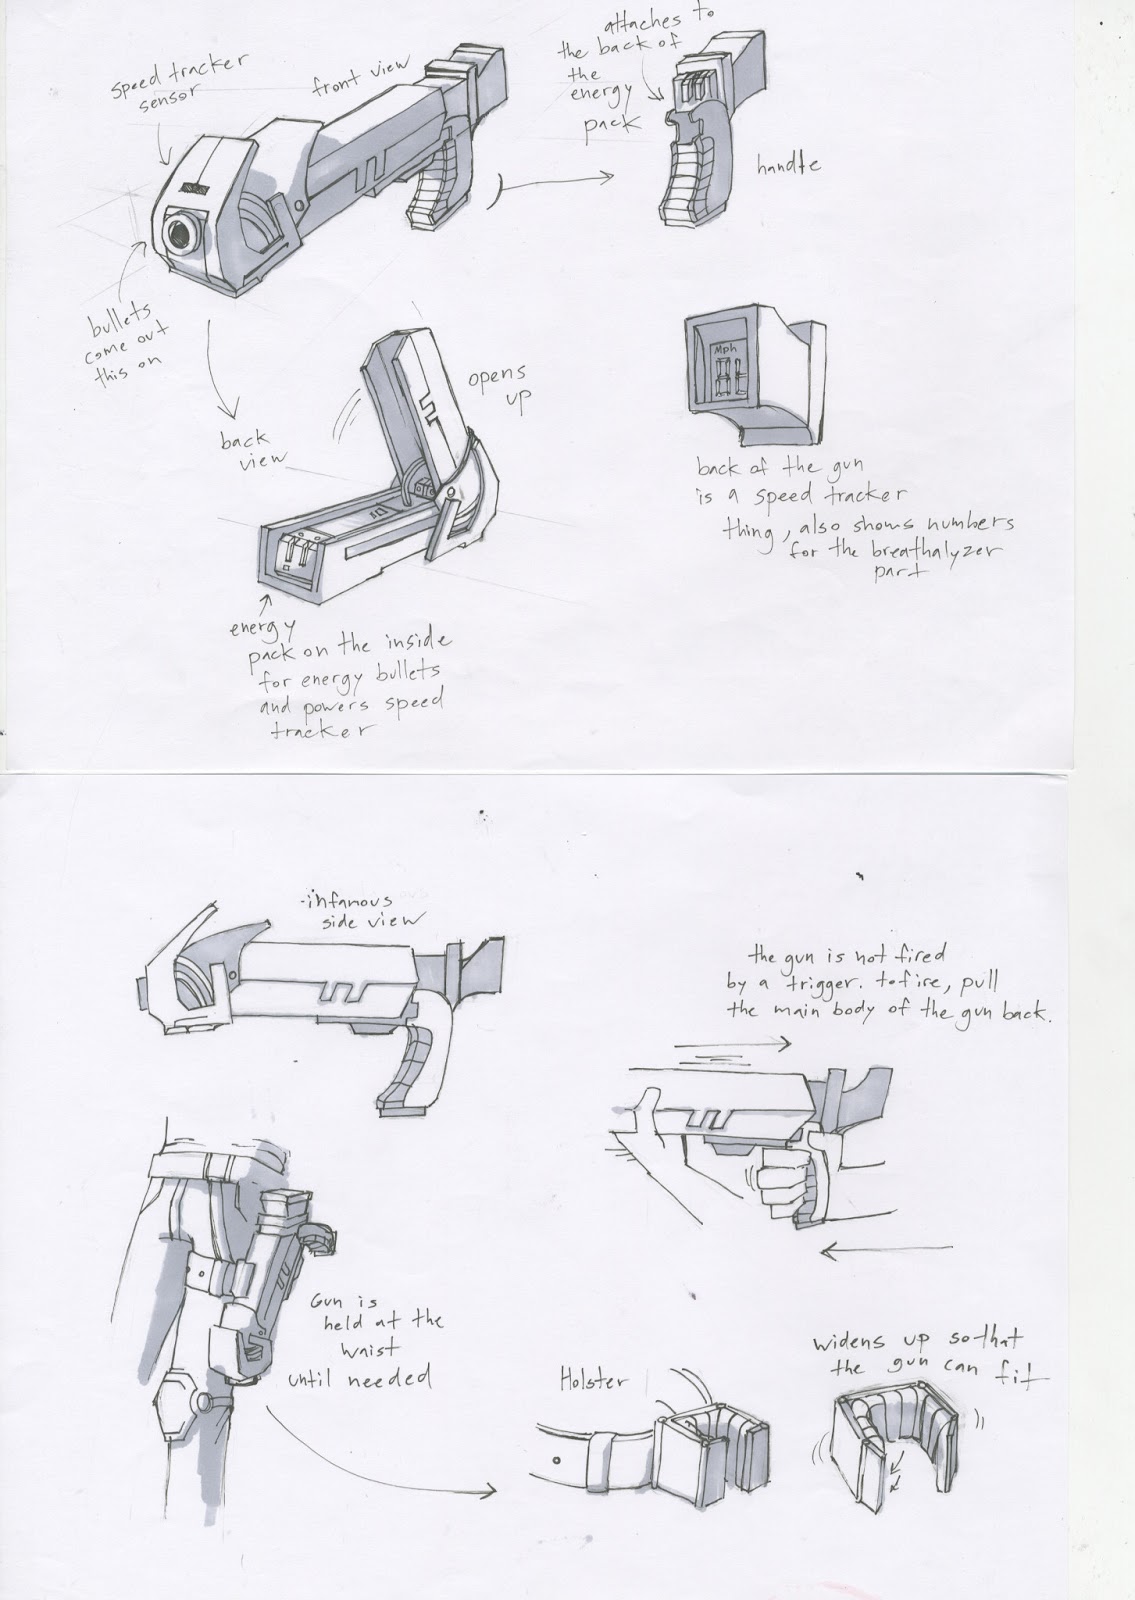 speed tracker
sensor
front view
attaches to
the back of
the
energy
pack
handle
bullets
come out
this on
back
view
opens
up
Mph
back of the gun
is a speed tracker
thing, also shows numbers
for the breathalyzer
part
energy
pack on the inside
for energy bullets
and powers speed
tracker
-infamous
side view
the gun is not fired
by a trigger. to fire, pull
the main body of the gun back.
Gun is
held at the
waist
until needed
Holster
widens up so that
the gun can fit